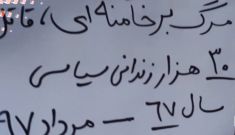 مرگ بر خامنه‌ای، قاتل
۳۰ هزار زندانی سیاسی
سال ۶۷ – مرداد ۹۷